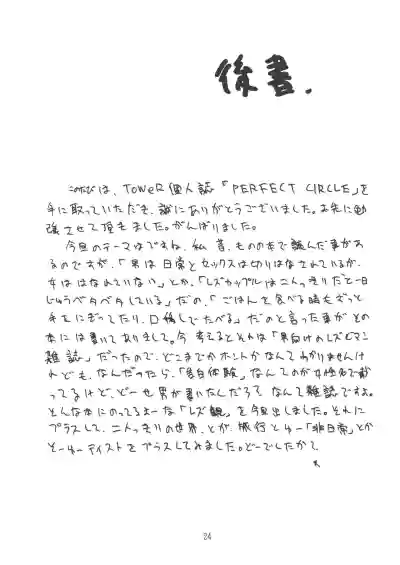 後書.
このたびは、TOWER個人誌「PERFECT CIRCLE」を
手に取っていただき、誠にありがとうございました。お先に勉
強させて頂きました。がんばりました。
今回のテーマはですね、私昔、ものの本で読んだ事があ
るのですが、「男は日常とセックスは切りはなされているが、
女ははなれていない」とか、「レズカップルは二人っきりだと一日
じゅうベタベタしている」だの、「ごはんを食べる時もずっと
手をにぎってたり、口移しでたべる」だのと言った事がその
本には書いてありまして。今考えるとそれは「男向けのレズとマン
雑誌」だったので、どこまでがホントかなんてわかりませんけ
れども、なんだったら、「告白体験」なんてのが女性名で載
ってるけど、どーせ男が書いたんだろ?なんて雑誌ですよ。
そんな本にのってるよーな「レズ観」を今回出しました。それに
プラスして、二人っきりの世界、とか、旅行とゆー「非日常」とか
そーゆーテイストをプラスしてみました。どーでしたか?
24